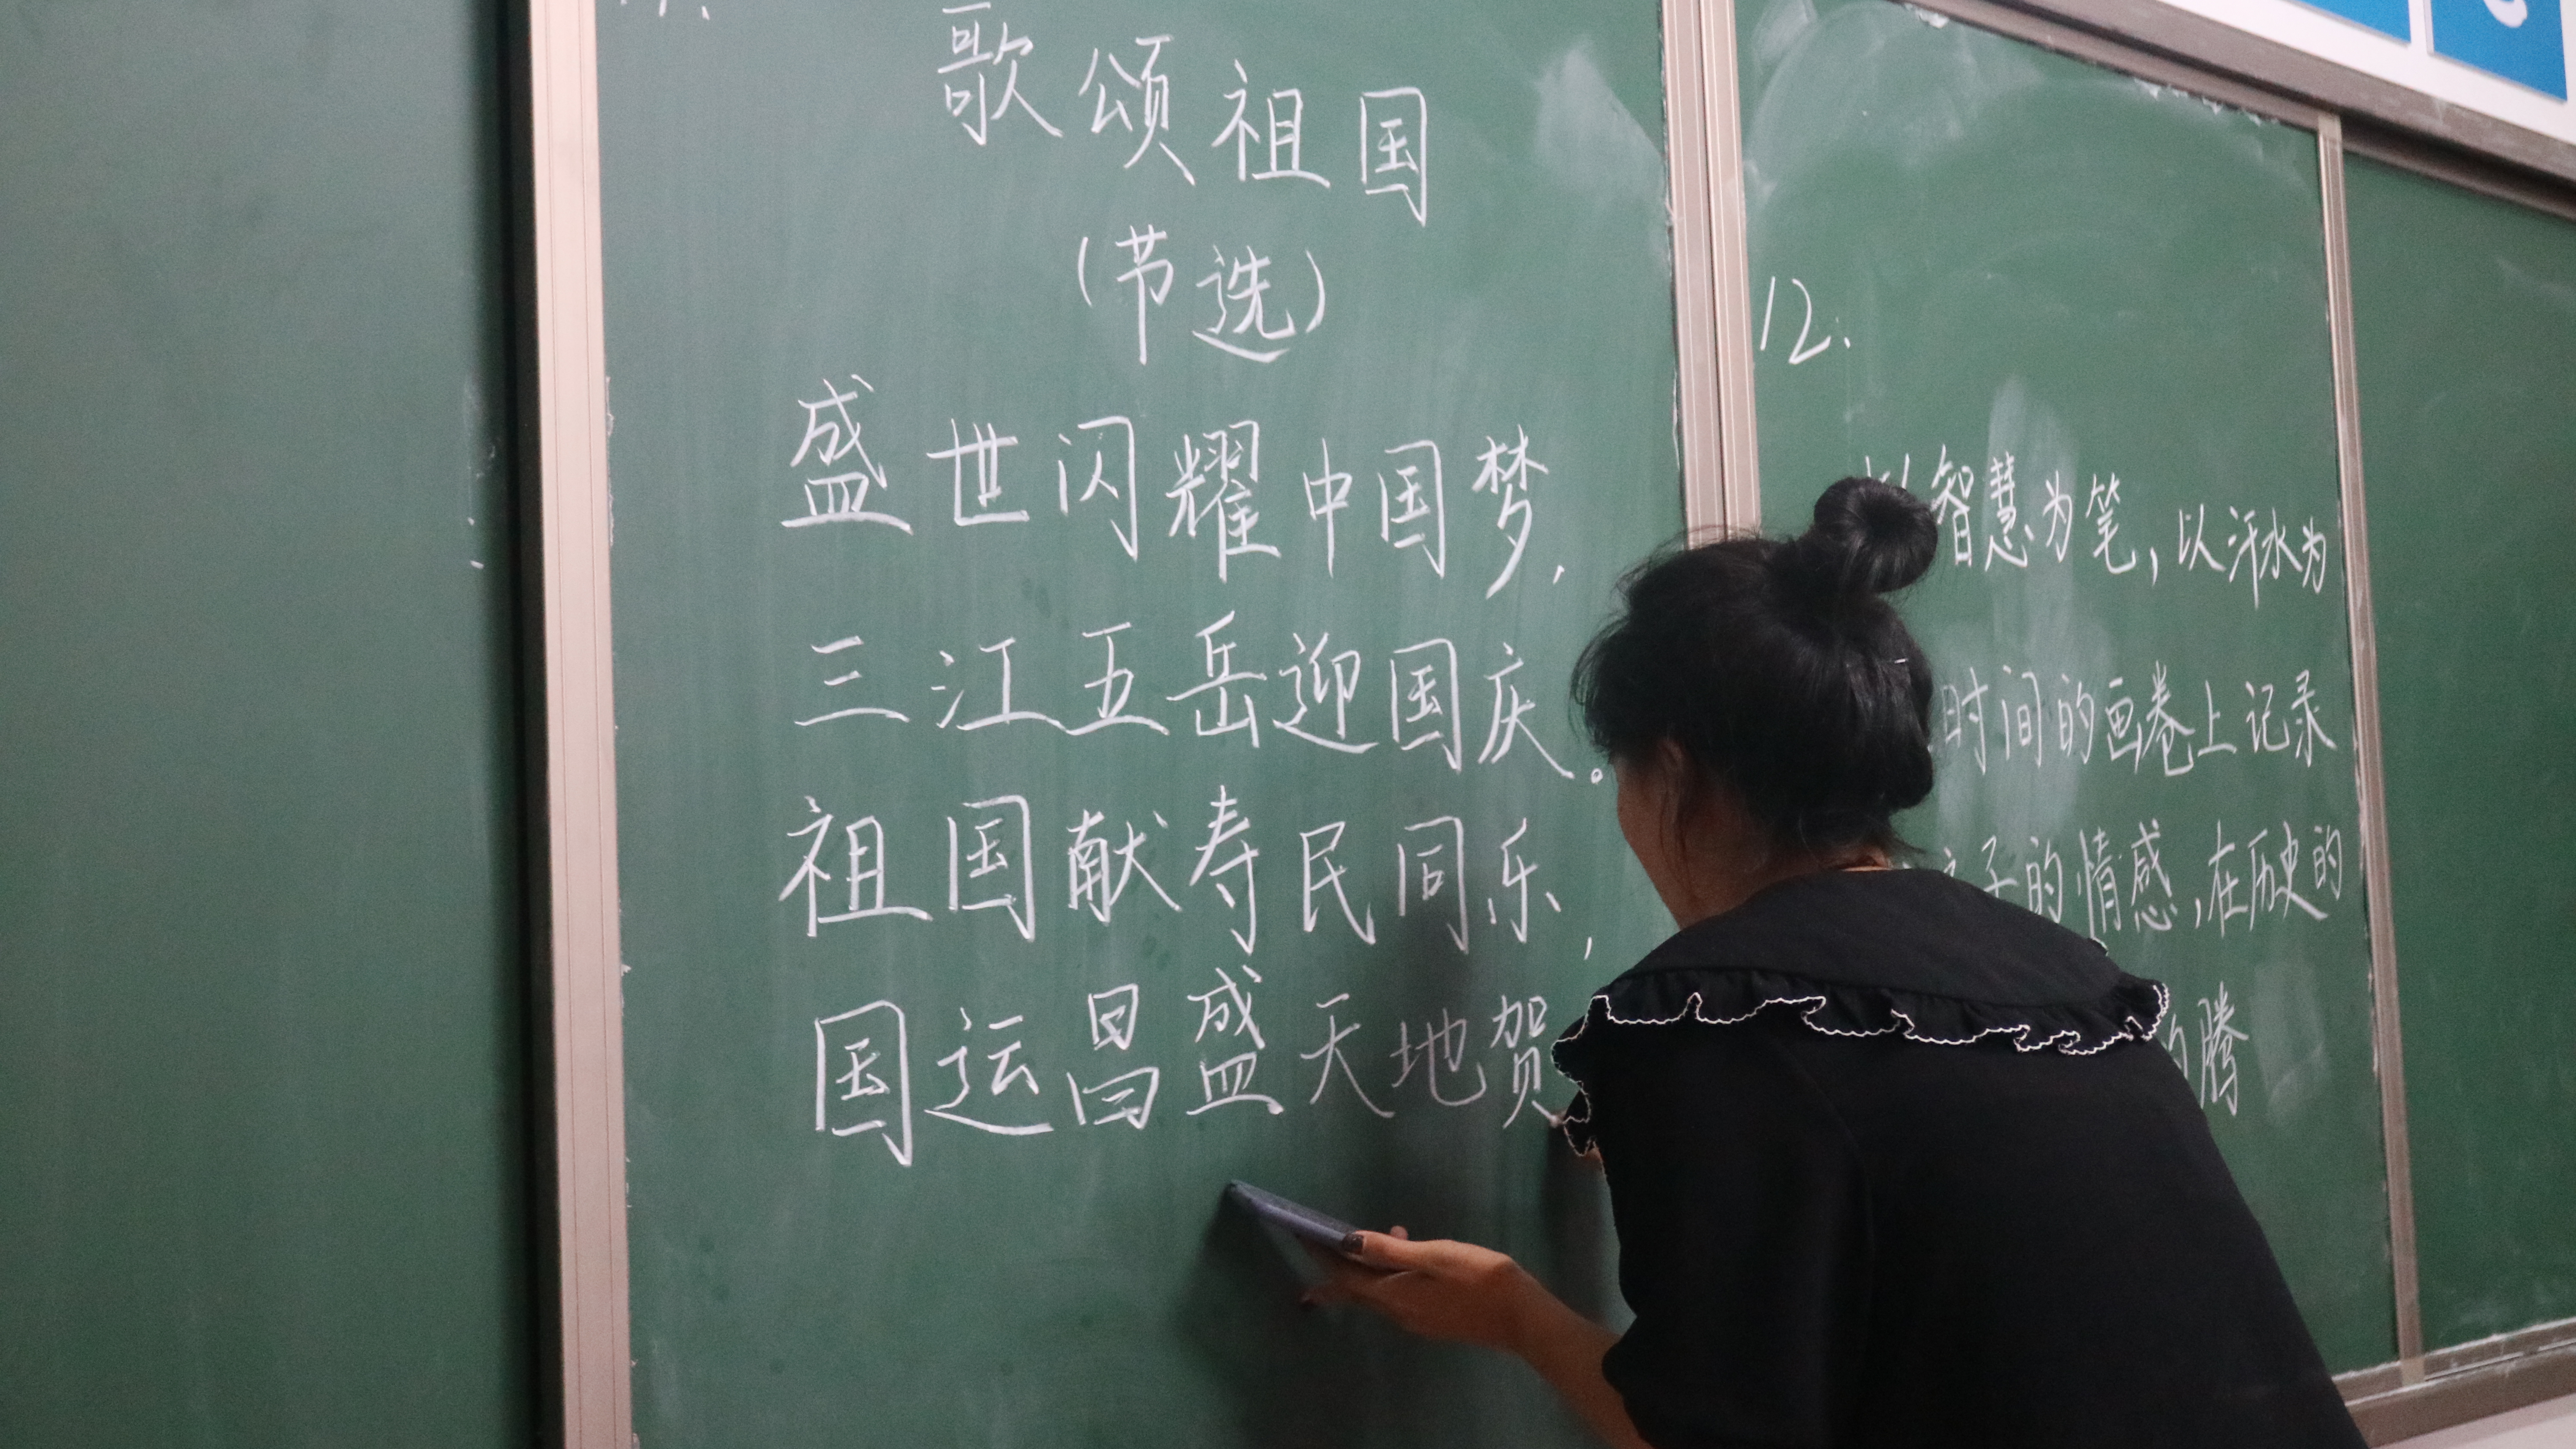 歌颂祖国
(节选)
盛世闪耀中国梦，
三江五岳迎国庆。
祖国献寿民同乐，
国运昌盛天地贺
12.
以智慧为笔，以汗水为
时间的画卷上记录
子的情感，在历史的
的腾